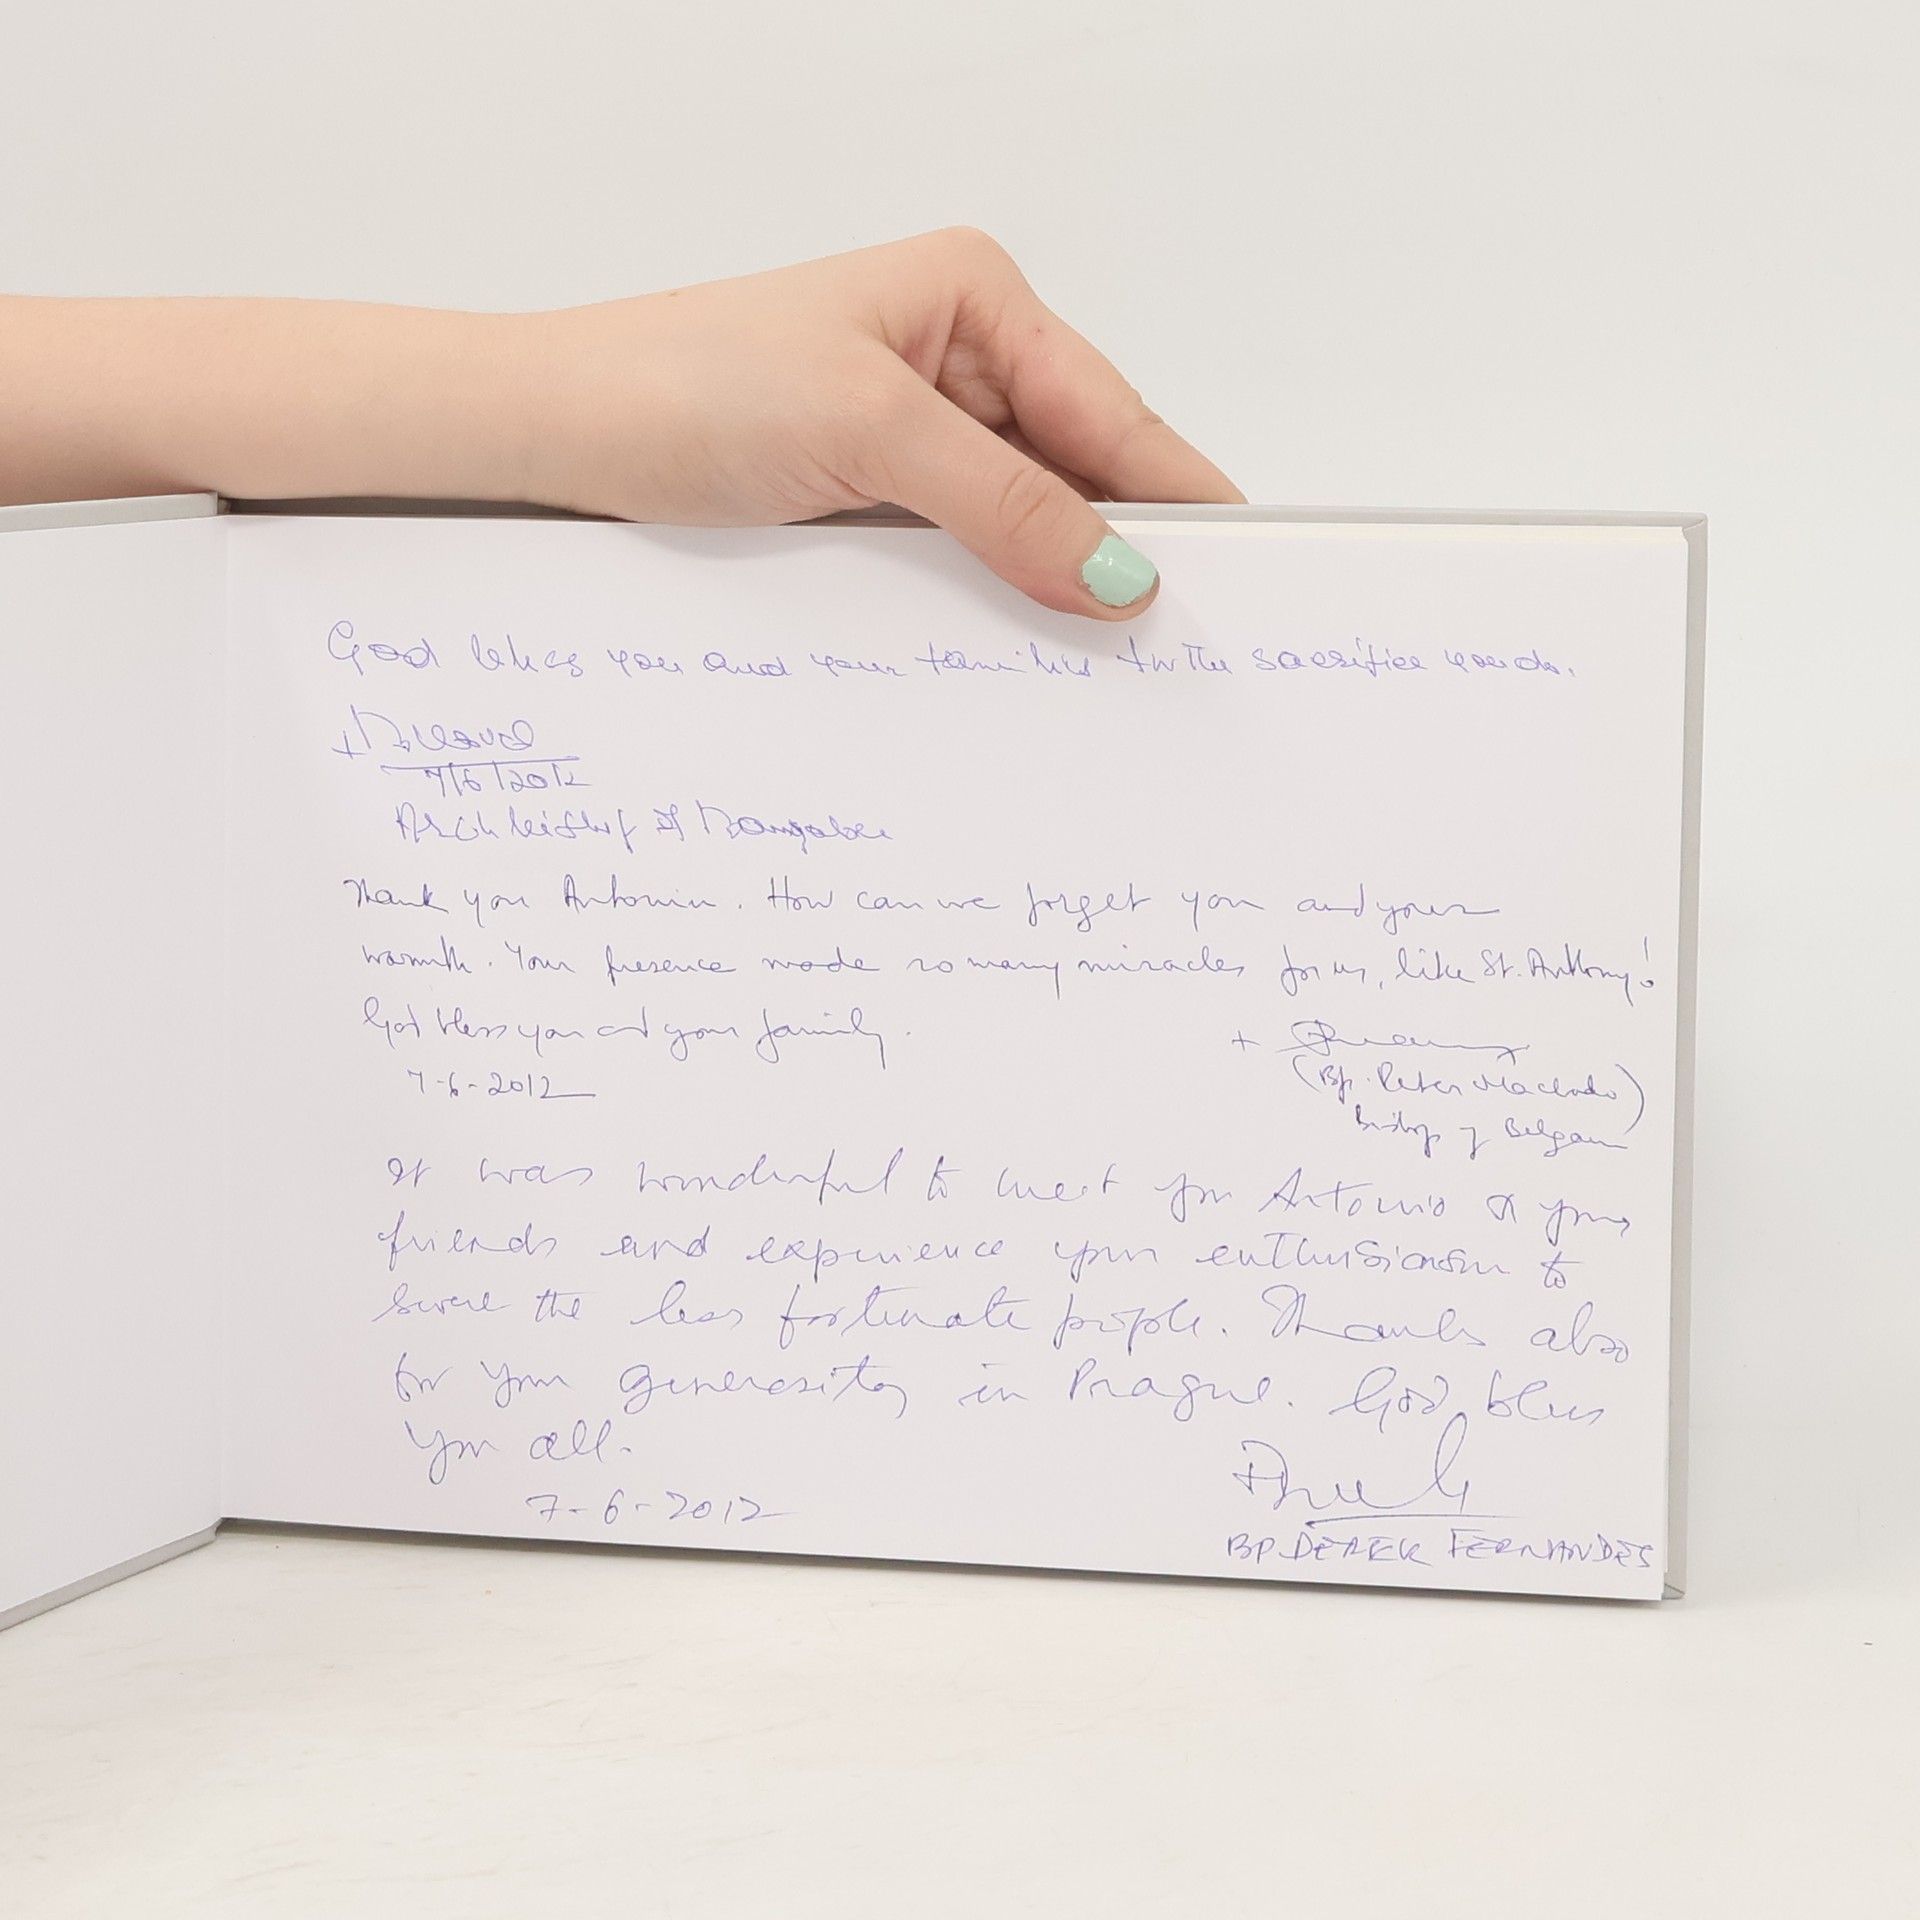 God bless you and your families for the sacrifice you do.
+
7/6/2012
Archbishop of Bangalore
Thank you Antonin. How can we forget you and your
warmth. Your presence made so many miracles for us, like St. Anthony!
God bless you and your family.
+
7-6-2012
(Bp. Peter Machado)
Bishop of Belgaum
It was wonderful to meet you Antonio & your
friends and experience your enthusiasm to
serve the less fortunate people. Thanks also
for your generosity in Prague. God bless
you all.
7-6-2012
BP. DEREK FERNANDES